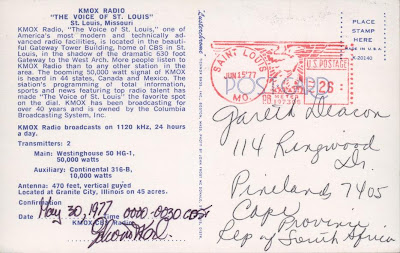 KMOX RADIO
"THE VOICE OF ST. LOUIS"
St. Louis, Missouri
KMOX Radio, "The Voice of St. Louis," one of
America's most modern and technically ad-
vanced radio facilities, is located in the beauti-
ful Gateway Tower Building, home of CBS in St.
Louis, in the shadow of the dramatic 630 foot
Gateway to the West Arch. More people listen to
KMOX Radio than to any other station in the
area. The booming 50,000 watt signal of KMOX
is heard in 44 states, Canada and Mexico. The
station's programming of total information,
sports and news featuring top radio talent has
made "The Voice of St. Louis" the favorite spot
on the dial. KMOX has been broadcasting for
over 40 years and is owned by the Columbia
Broadcasting System, Inc.
KMOX Radio broadcasts on 1120 kHz, 24 hours
a day.
Transmitters: 2
Main: Westinghouse 50 HG-1,
50,000 watts
Auxiliary: Continental 316-B,
10,000 watts
Antenna: 470 feet, vertical guyed
Located at Granite City, Illinois on 45 acres.
Confirmation
Date May 30, 1977 Time 0000-0030 CDST
KMOX-CBS Radio
PLACE
STAMP
HERE
MADE IN U.S.A.
X-20240
SAINT LOUIS
JUN 15'77
MO.
U.S. POSTAGE
POST CARD
Gareth Deacon
114 Ringwood
Dr.
Pinelands 7405
Cape
Province
Rep of South Africa